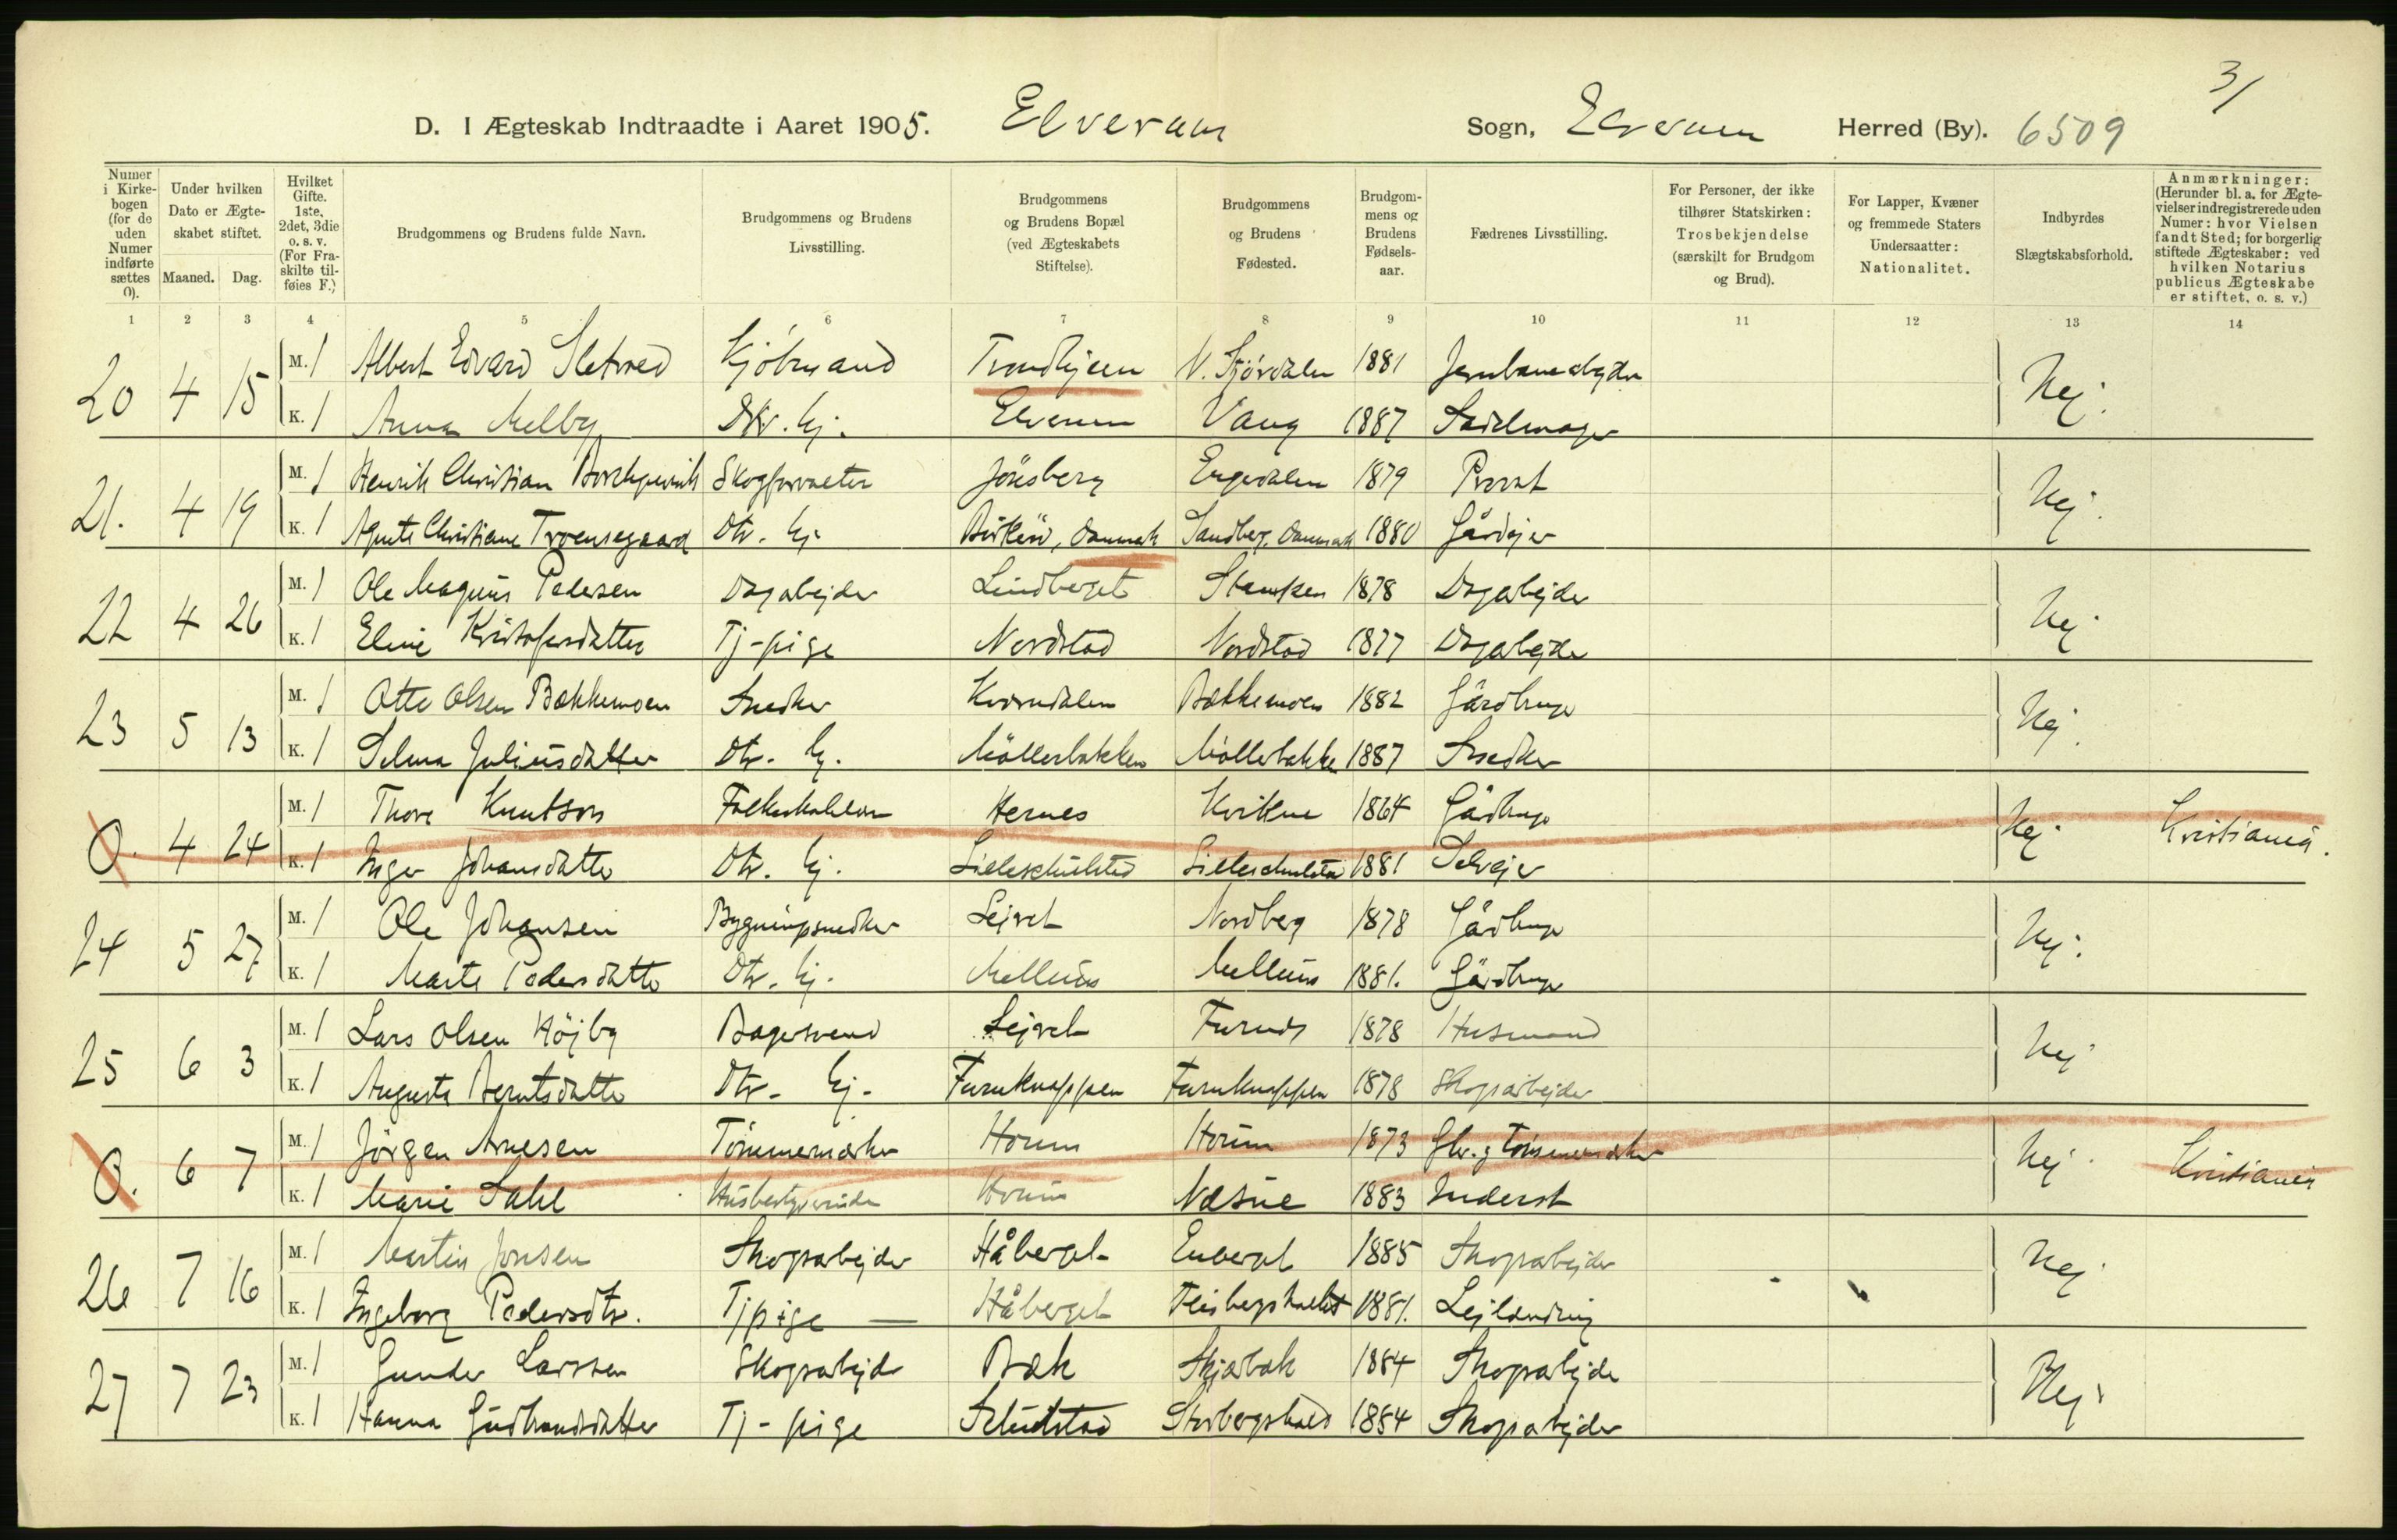 31
D. I Ægteskab Indtraadte i Aaret 1905. Elverum Sogn, Elverum Herred (By). 6509
Numer i Kirkebogen (for de uden Numer indførte sættes 0).
Under hvilken Dato er Ægteskabet stiftet.
Maaned. Dag.
Hvilket Gifte. 1ste, 2det, 3die o. s. v. (For Fraskilte tilføies F.)
Brudgommens og Brudens fulde Navn.
Brudgommens og Brudens Livsstilling.
Brudgommens og Brudens Bopæl (ved Ægteskabets Stiftelse).
Brudgommens og Brudens Fødested.
Brudgommens og Brudens Fødselsaar.
Fædrenes Livsstilling.
For Personer, der ikke tilhører Statskirken: Trosbekjendelse (særskilt for Brudgom og Brud).
For Lapper, Kvæner og fremmede Staters Undersaatter: Nationalitet.
Indbyrdes Slægtskabsforhold.
Anmærkninger: (Herunder bl. a. for Ægtevielser indregistrerede uden Numer: hvor Vielsen fandt Sted; for borgerlig stiftede Ægteskaber: ved hvilken Notarius publicus Ægteskabe er stiftet, o. s. v.)
1 2 3 4 5 6 7 8 9 10 11 12 13 14
20 4 15 M. 1 Albert Edvard Sletved Kjøbmand Trondhjem N. Stjørdalen 1881 Jernbanearbejder Nej.
K. 1 Anna Melby Dtr. hj. Elverum Vang 1887 Sadelmager
21. 4 19 M. 1 Henrik Christian Skogforvalter Jönsberg Engerdalen 1879 Provst Nej.
K. 1 Agnete Christiane Troensegaard Dtr. hj. Birkerö, Danmark Sandberg, Danmark 1880 Gårdejer
22 4 26 M. 1 Ole Magnus Pedersen Dagarbejder Lindberget 1878 Dagarbejder Nej.
K. 1 Eline Kristofersdatter Tj-pige Nordstad Nordstad 1877 Dagarbejder
23 5 13 M. 1 Otto Olsen Bækkemoen Snedker Kværndalen Bækkemoen 1882 Gårdbruger Nej.
K. 1 Selma Juliusdatter Dtr. hj. Möllerbakken Möllerbakken 1887 Snedker
0. 4 24 M. 1 Thore Knutson Folkeskolelærer Hernes Kvikne 1864 Gårdbruger Nej. Kristiania.
K. 1 Inger Johansdatter Dtr. hj. Lilleschulstad Lilleschulstad 1881 Selvejer
24 5 27 M. 1 Ole Johansen Bygningssnedker Lejret Nordberg 1878 Gårdbruger Nej.
K. 1 Marte Pedersdatter Dtr. hj. Mellum Mellum 1881. Gårdbruger
25 6 3 M. 1 Lars Olsen Höjby Bagersvend Lejret Furnes 1878 Husmand Nej
K. 1 Augusta Berntsdatter Dtr. hj. Furuknappen Furuknappen 1878 Skogsarbejder
0. 6 7 M. 1 Jörgen Arnesen Tömmermærker Horum Horum 1873 Gbr. g tömmermærker Nej. Kristiania
K. 1 Marie Dahl Husbestyrerinde Horum Næsne 1883 Inderst
26 7 16 M. 1 Martin Jonsen Skogsarbejder Håberget Enberget 1885 Skogsarbejder Nej.
K. 1 Ingeborg Pedersdtr. Tjpige Håberget 1881. Lejlending
27 7 23 M. 1 Gunder Larssen Skogsarbejder Bæk Skjærbæk 1884 Skogsarbejder Nej.
K. 1 Hanna Gudbrandsdatter Tj-pige Schulstad Storbergshold 1884 Skogsarbejder